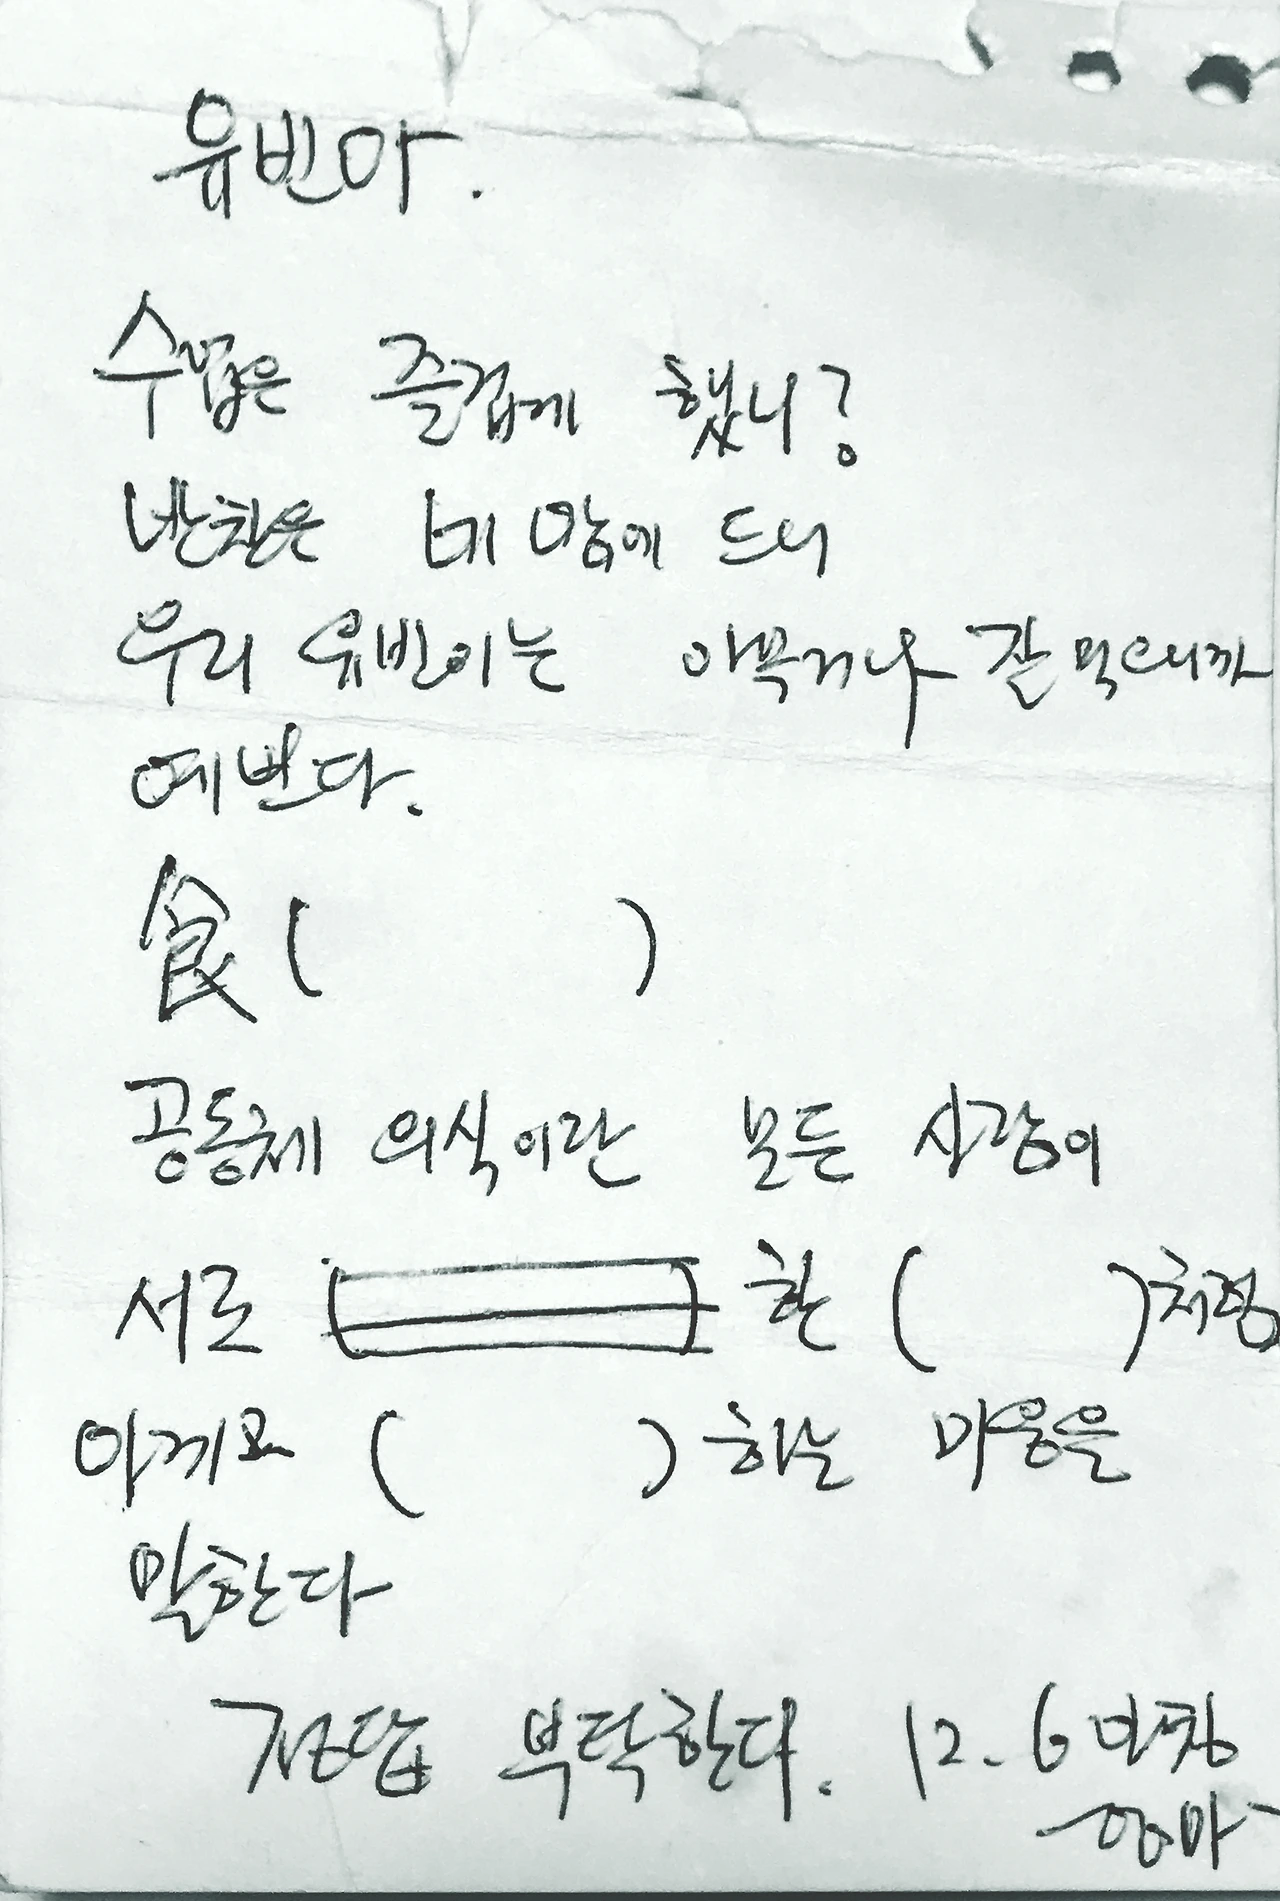 유빈아.
수업은 즐겁게 했니?
반찬은 네 맘에 드니
우리 유빈이는 아무거나 잘 먹으니까
예쁘다.
食 ( )
공동체 의식이란 모든 사람이
서로 ( ) 한 ( )처럼
아끼고 ( )하는 마음을
말한다
정답 부탁한다. 12. 6 반찬
엄마